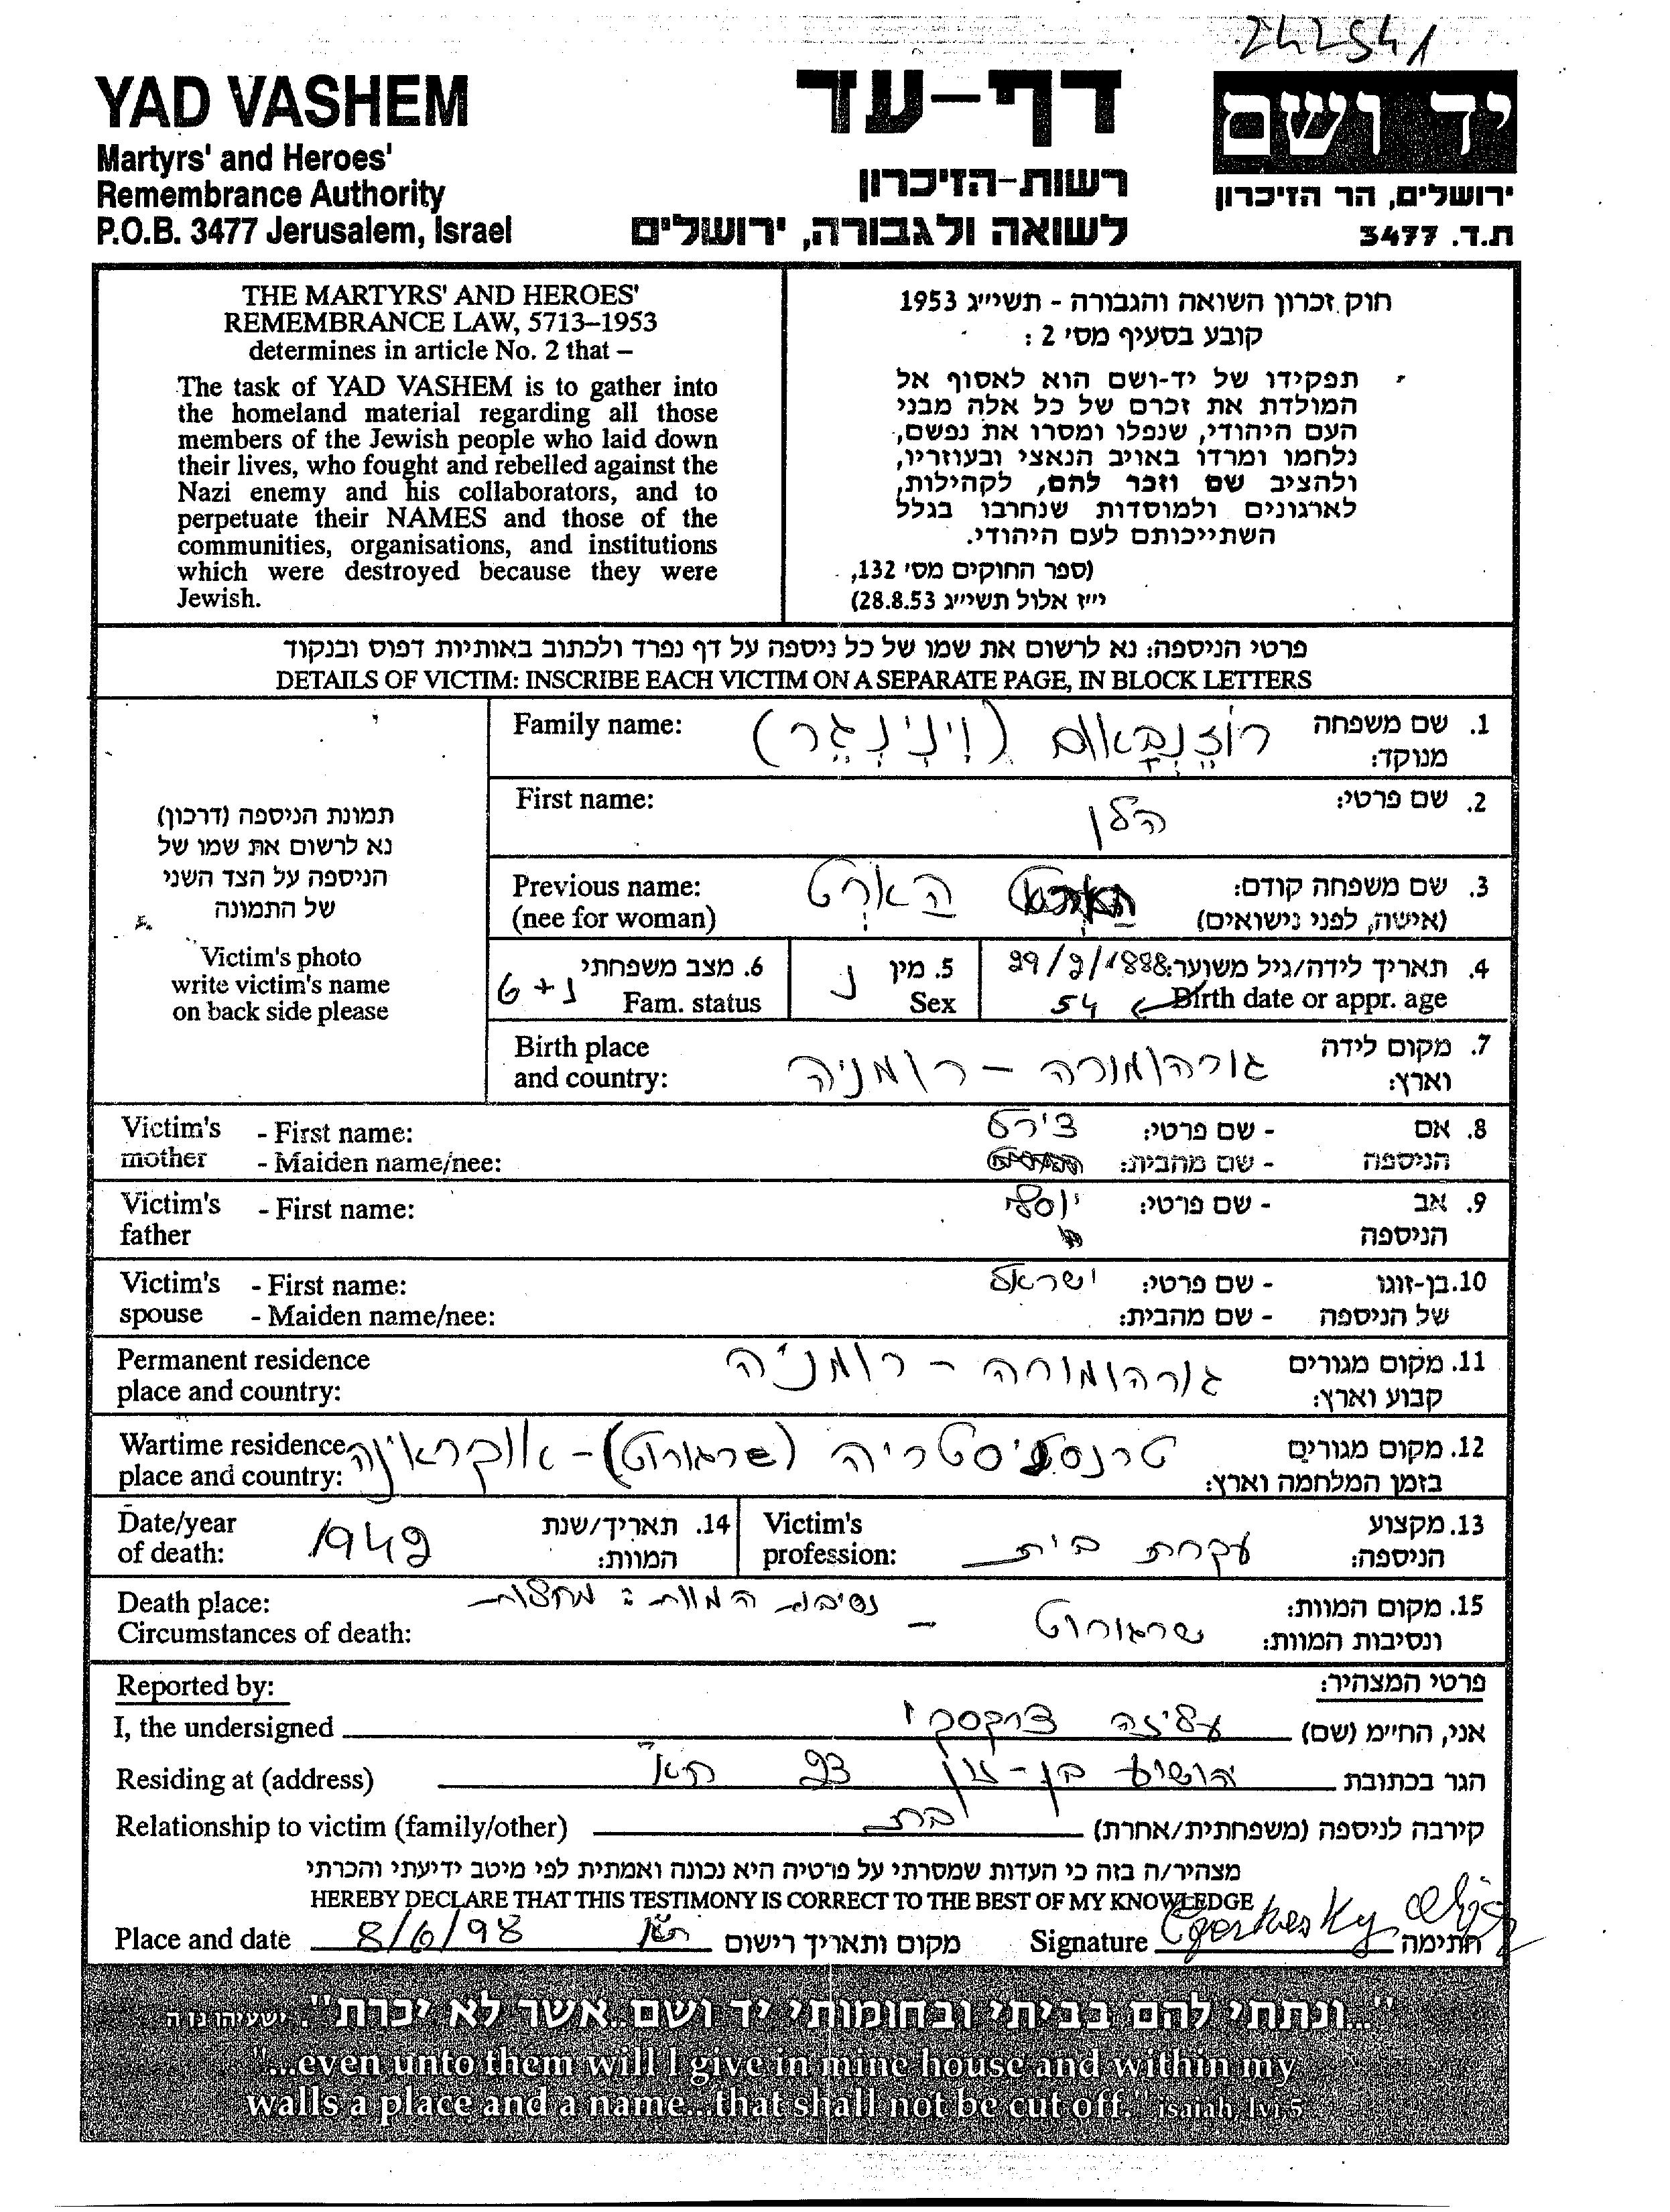 242541
YAD VASHEM
Martyrs' and Heroes'
Remembrance Authority
P.O.B. 3477 Jerusalem, Israel
דף-עד
רשות-הזיכרון
לשואה ולגבורה, ירושלים
יד ושם
ירושלים, הר הזיכרון
ת.ד. 3477
THE MARTYRS' AND HEROES'
REMEMBRANCE LAW, 5713–1953
determines in article No. 2 that –
The task of YAD VASHEM is to gather into
the homeland material regarding all those
members of the Jewish people who laid down
their lives, who fought and rebelled against the
Nazi enemy and his collaborators, and to
perpetuate their NAMES and those of the
communities, organisations, and institutions
which were destroyed because they were
Jewish.
חוק זכרון השואה והגבורה - תשי״ג 1953
קובע בסעיף מס׳ 2 :
תפקידו של יד-ושם הוא לאסוף אל
המולדת את זכרם של כל אלה מבני
העם היהודי, שנפלו ומסרו את נפשם,
נלחמו ומרדו באויב הנאצי ובעוזריו,
ולהציב שם וזכר להם, לקהילות,
לארגונים ולמוסדות שנחרבו בגלל
השתייכותם לעם היהודי.
(ספר החוקים מס׳ 132,
י״ז אלול תשי״ג 28.8.53)
פרטי הניספה: נא לרשום את שמו של כל ניספה על דף נפרד ולכתוב באותיות דפוס ובנקוד
DETAILS OF VICTIM: INSCRIBE EACH VICTIM ON A SEPARATE PAGE, IN BLOCK LETTERS
תמונת הניספה (דרכון)
נא לרשום את שמו של
הניספה על הצד השני
של התמונה
Victim's photo
write victim's name
on back side please
Family name: רוֹזֶנְבָּאוּם (וִינִינְגֶר) 1. שם משפחה
מנוקד:
First name: הלן 2. שם פרטי:
Previous name: הַארְט 3. שם משפחה קודם:
(nee for woman) (אישה, לפני נישואים)
6. מצב משפחתי נ + 6
Fam. status
5. מין נ
Sex
4. תאריך לידה/גיל משוער: 29/9/1888
Birth date or appr. age 54
Birth place גורהומורה - רומניה 7. מקום לידה
and country: וארץ:
Victim's - First name: צירט - שם פרטי: 8. אם
mother - Maiden name/nee: - שם מהבית: הניספה
Victim's - First name: יוסף - שם פרטי: 9. אב
father הניספה
Victim's - First name: ישראל - שם פרטי: 10. בן-זוגו
spouse - Maiden name/nee: - שם מהבית: של הניספה
Permanent residence גורהומורה - רומניה 11. מקום מגורים
place and country: קבוע וארץ:
Wartime residence טרנסניסטריה (שרגורוט) - אוקראינה 12. מקום מגורים
place and country: בזמן המלחמה וארץ:
Date/year 1942 14. תאריך/שנת
of death: המוות:
Victim's עקרת בית 13. מקצוע
profession: הניספה:
Death place: נסיבות המוות: מחלות 15. מקום המוות:
Circumstances of death: שרגורוט - ונסיבות המוות:
Reported by: פרטי המצהיר:
I, the undersigned עליזה צרקסקי אני, החי״מ (שם)
Residing at (address) הושיע בן-נון 23 ת״א הגר בכתובת
Relationship to victim (family/other) בת קירבה לניספה (משפחתית/אחרת)
מצהיר/ה בזה כי העדות שמסרתי על פרטיה היא נכונה ואמתית לפי מיטב ידיעתי והכרתי
HEREBY DECLARE THAT THIS TESTIMONY IS CORRECT TO THE BEST OF MY KNOWLEDGE
Place and date 8/6/98 ת״א מקום ותאריך רישום Signature חתימה
"...ונתתי להם בביתי ובחומותי יד ושם...אשר לא יכרת". ישעיהו נו ה
"...even unto them will I give in mine house and within my
walls a place and a name...that shall not be cut off." isaiah, lvi,5